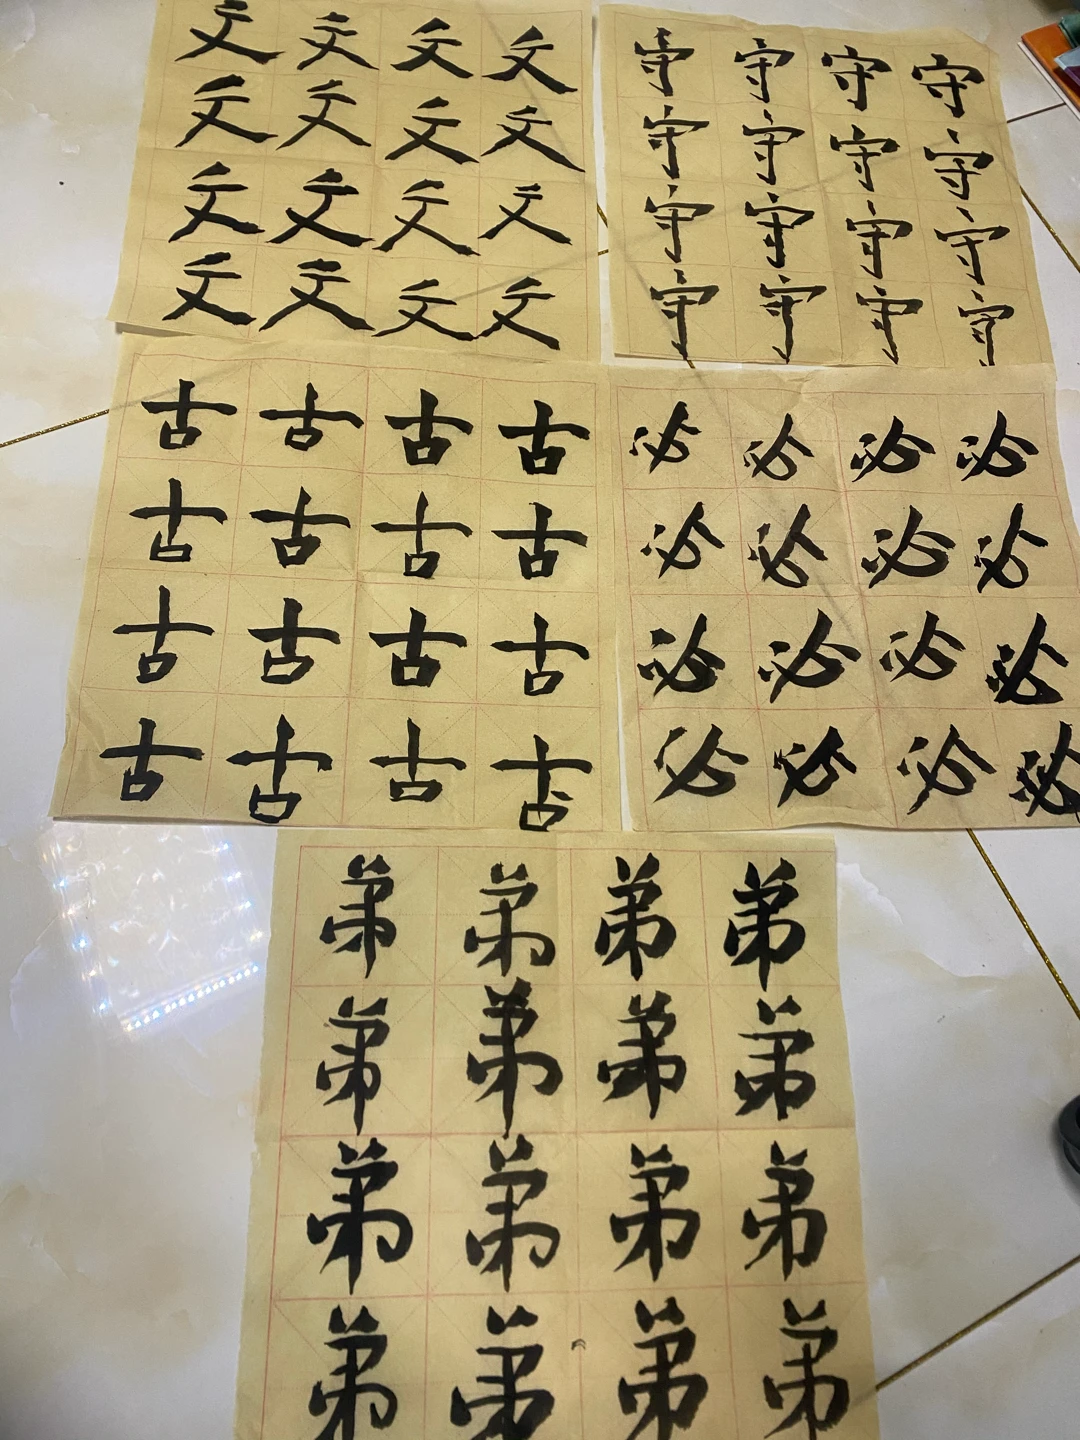 文文文文
文文文文
文文文文
文文文文
守守守守
守守守守
守守守守
守守守守
古古古古
古古古古
古古古古
古古古古
必必必必
必必必必
必必必必
必必必必
弟弟弟弟
弟弟弟弟
弟弟弟弟
弟弟弟弟